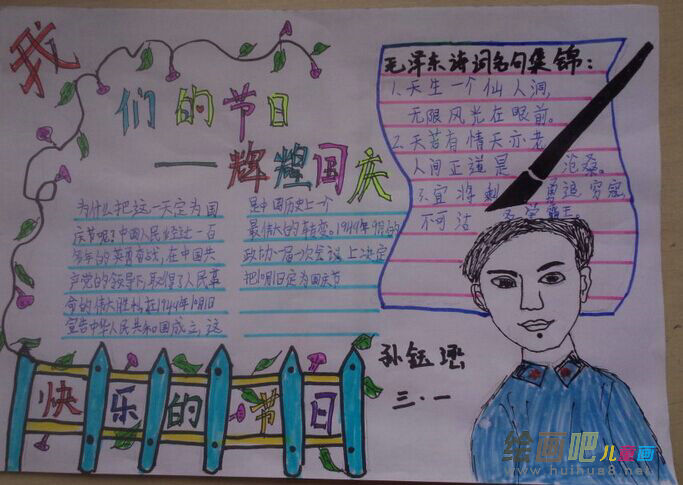 我们的节日
——辉煌国庆
为什么把这一天定为国
庆节呢?中国人民经过一百
多年的英勇奋战,在中国共
产党的领导下,取得了人民革
命的伟大胜利,在1949年10月1日
宣告中华人民共和国成立,这
是中国历史上一个
最伟大的转变。1949年9月的
政协一届一次会议上决定
把10月1日定为国庆节
毛泽东诗词名句集锦:
1.天生一个仙人洞,
无限风光在眼前。
2.天若有情天亦老
人间正道是 沧桑。
3.宜将剩 勇追穷寇
不可沽 霸王。
孙钰
三·一
快乐的节日
绘画吧儿童画
www.huihua8.net